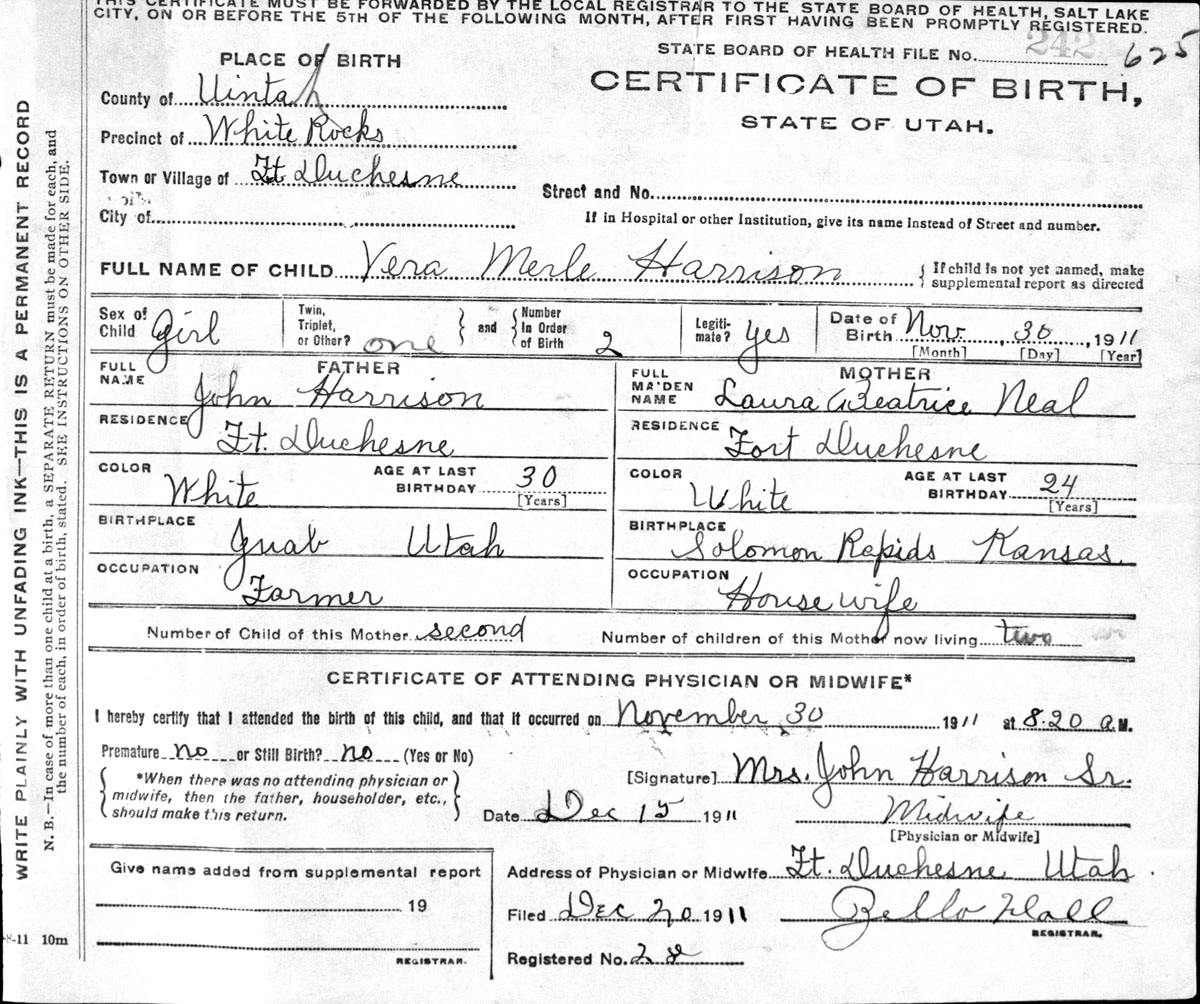 THIS CERTIFICATE MUST BE FORWARDED BY THE LOCAL REGISTRAR TO THE STATE BOARD OF HEALTH, SALT LAKE
CITY, ON OR BEFORE THE 5TH OF THE FOLLOWING MONTH, AFTER FIRST HAVING BEEN PROMPTLY REGISTERED.
PLACE OF BIRTH
STATE BOARD OF HEALTH FILE No. 242 625
CERTIFICATE OF BIRTH,
STATE OF UTAH.
County of Uintah
Precinct of White Rocks
Town or Village of Ft. Duchesne
Street and No.
City of
If in Hospital or other Institution, give its name instead of Street and number.
FULL NAME OF CHILD Vera Merle Harrison
{ If child is not yet named, make
supplemental report as directed
Sex of Child Girl
Twin, Triplet, or Other? one } and { Number In Order of Birth 2
Legitimate? Yes
Date of Birth Nov. 30, 1911
[Month] [Day] [Year]
FATHER
FULL NAME John Harrison
RESIDENCE Ft. Duchesne
COLOR White AGE AT LAST BIRTHDAY 30
[Years]
BIRTHPLACE Juab Utah
OCCUPATION Farmer
MOTHER
FULL MAIDEN NAME Laura Beatrice Neal
RESIDENCE Fort Duchesne
COLOR White AGE AT LAST BIRTHDAY 24
[Years]
BIRTHPLACE Solomon Rapids Kansas
OCCUPATION Housewife
Number of Child of this Mother second Number of children of this Mother now living two
CERTIFICATE OF ATTENDING PHYSICIAN OR MIDWIFE*
I hereby certify that I attended the birth of this child, and that it occurred on November 30 1911 at 8.20 A.M.
Premature no or Still Birth? no (Yes or No)
{ *When there was no attending physician or
midwife, then the father, householder, etc.,
should make this return. }
[Signature] Mrs. John Harrison Sr.
Date Dec 15 1911 Midwife
[Physician or Midwife]
Give name added from supplemental report
19
REGISTRAR.
Address of Physician or Midwife Ft. Duchesne Utah
Filed Dec 20 1911
REGISTRAR.
Registered No. 28
8-11 10m
WRITE PLAINLY WITH UNFADING INK—THIS IS A PERMANENT RECORD
N. B.—In case of more than one child at a birth, a SEPARATE RETURN must be made for each, and
the number of each, in order of birth, stated. SEE INSTRUCTIONS ON OTHER SIDE.